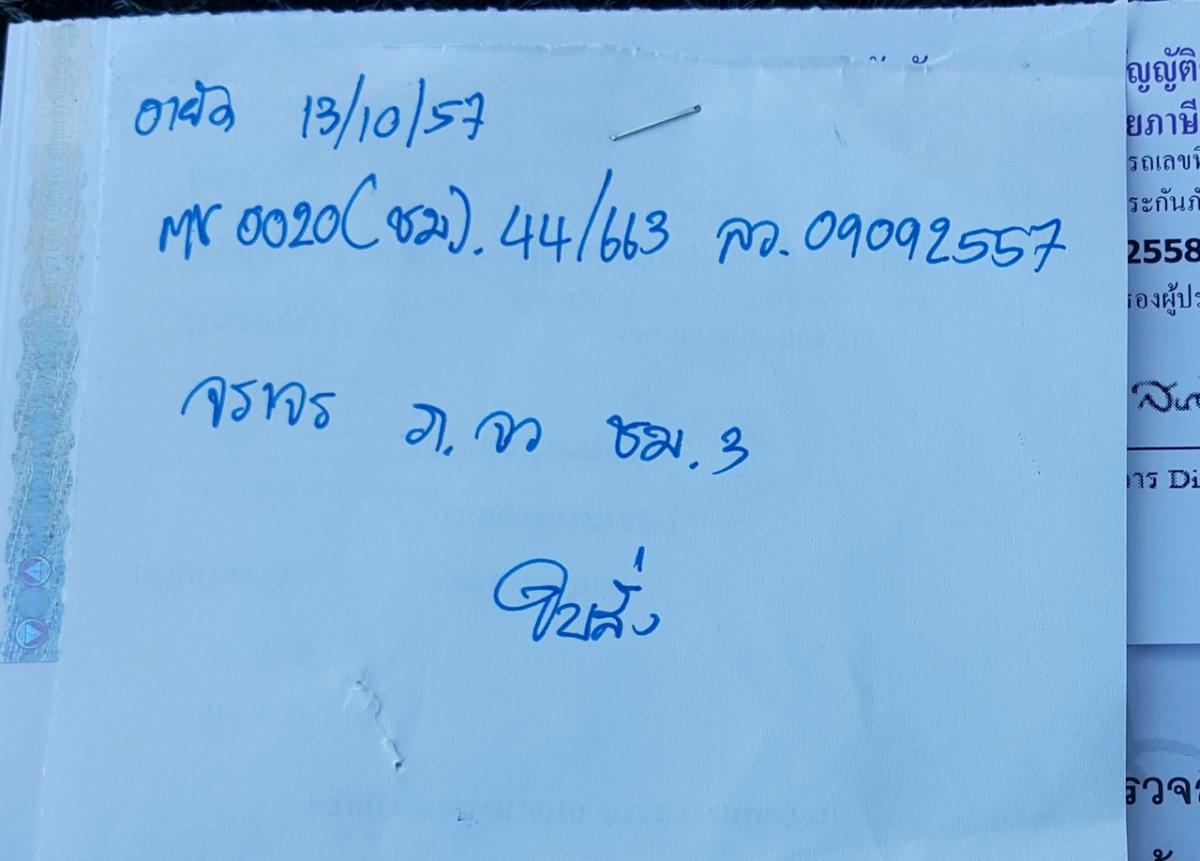 อายัด 13/10/57
ตช 0020(ชม).44/663 ลว. 09092557
จราจร ภ.จว ชม.3
ใบสั่ง
ญญัติ
ยภาษี
รถเลขที่
ระกันภั
2558
รองผู้ปร
าร Di
รวจ